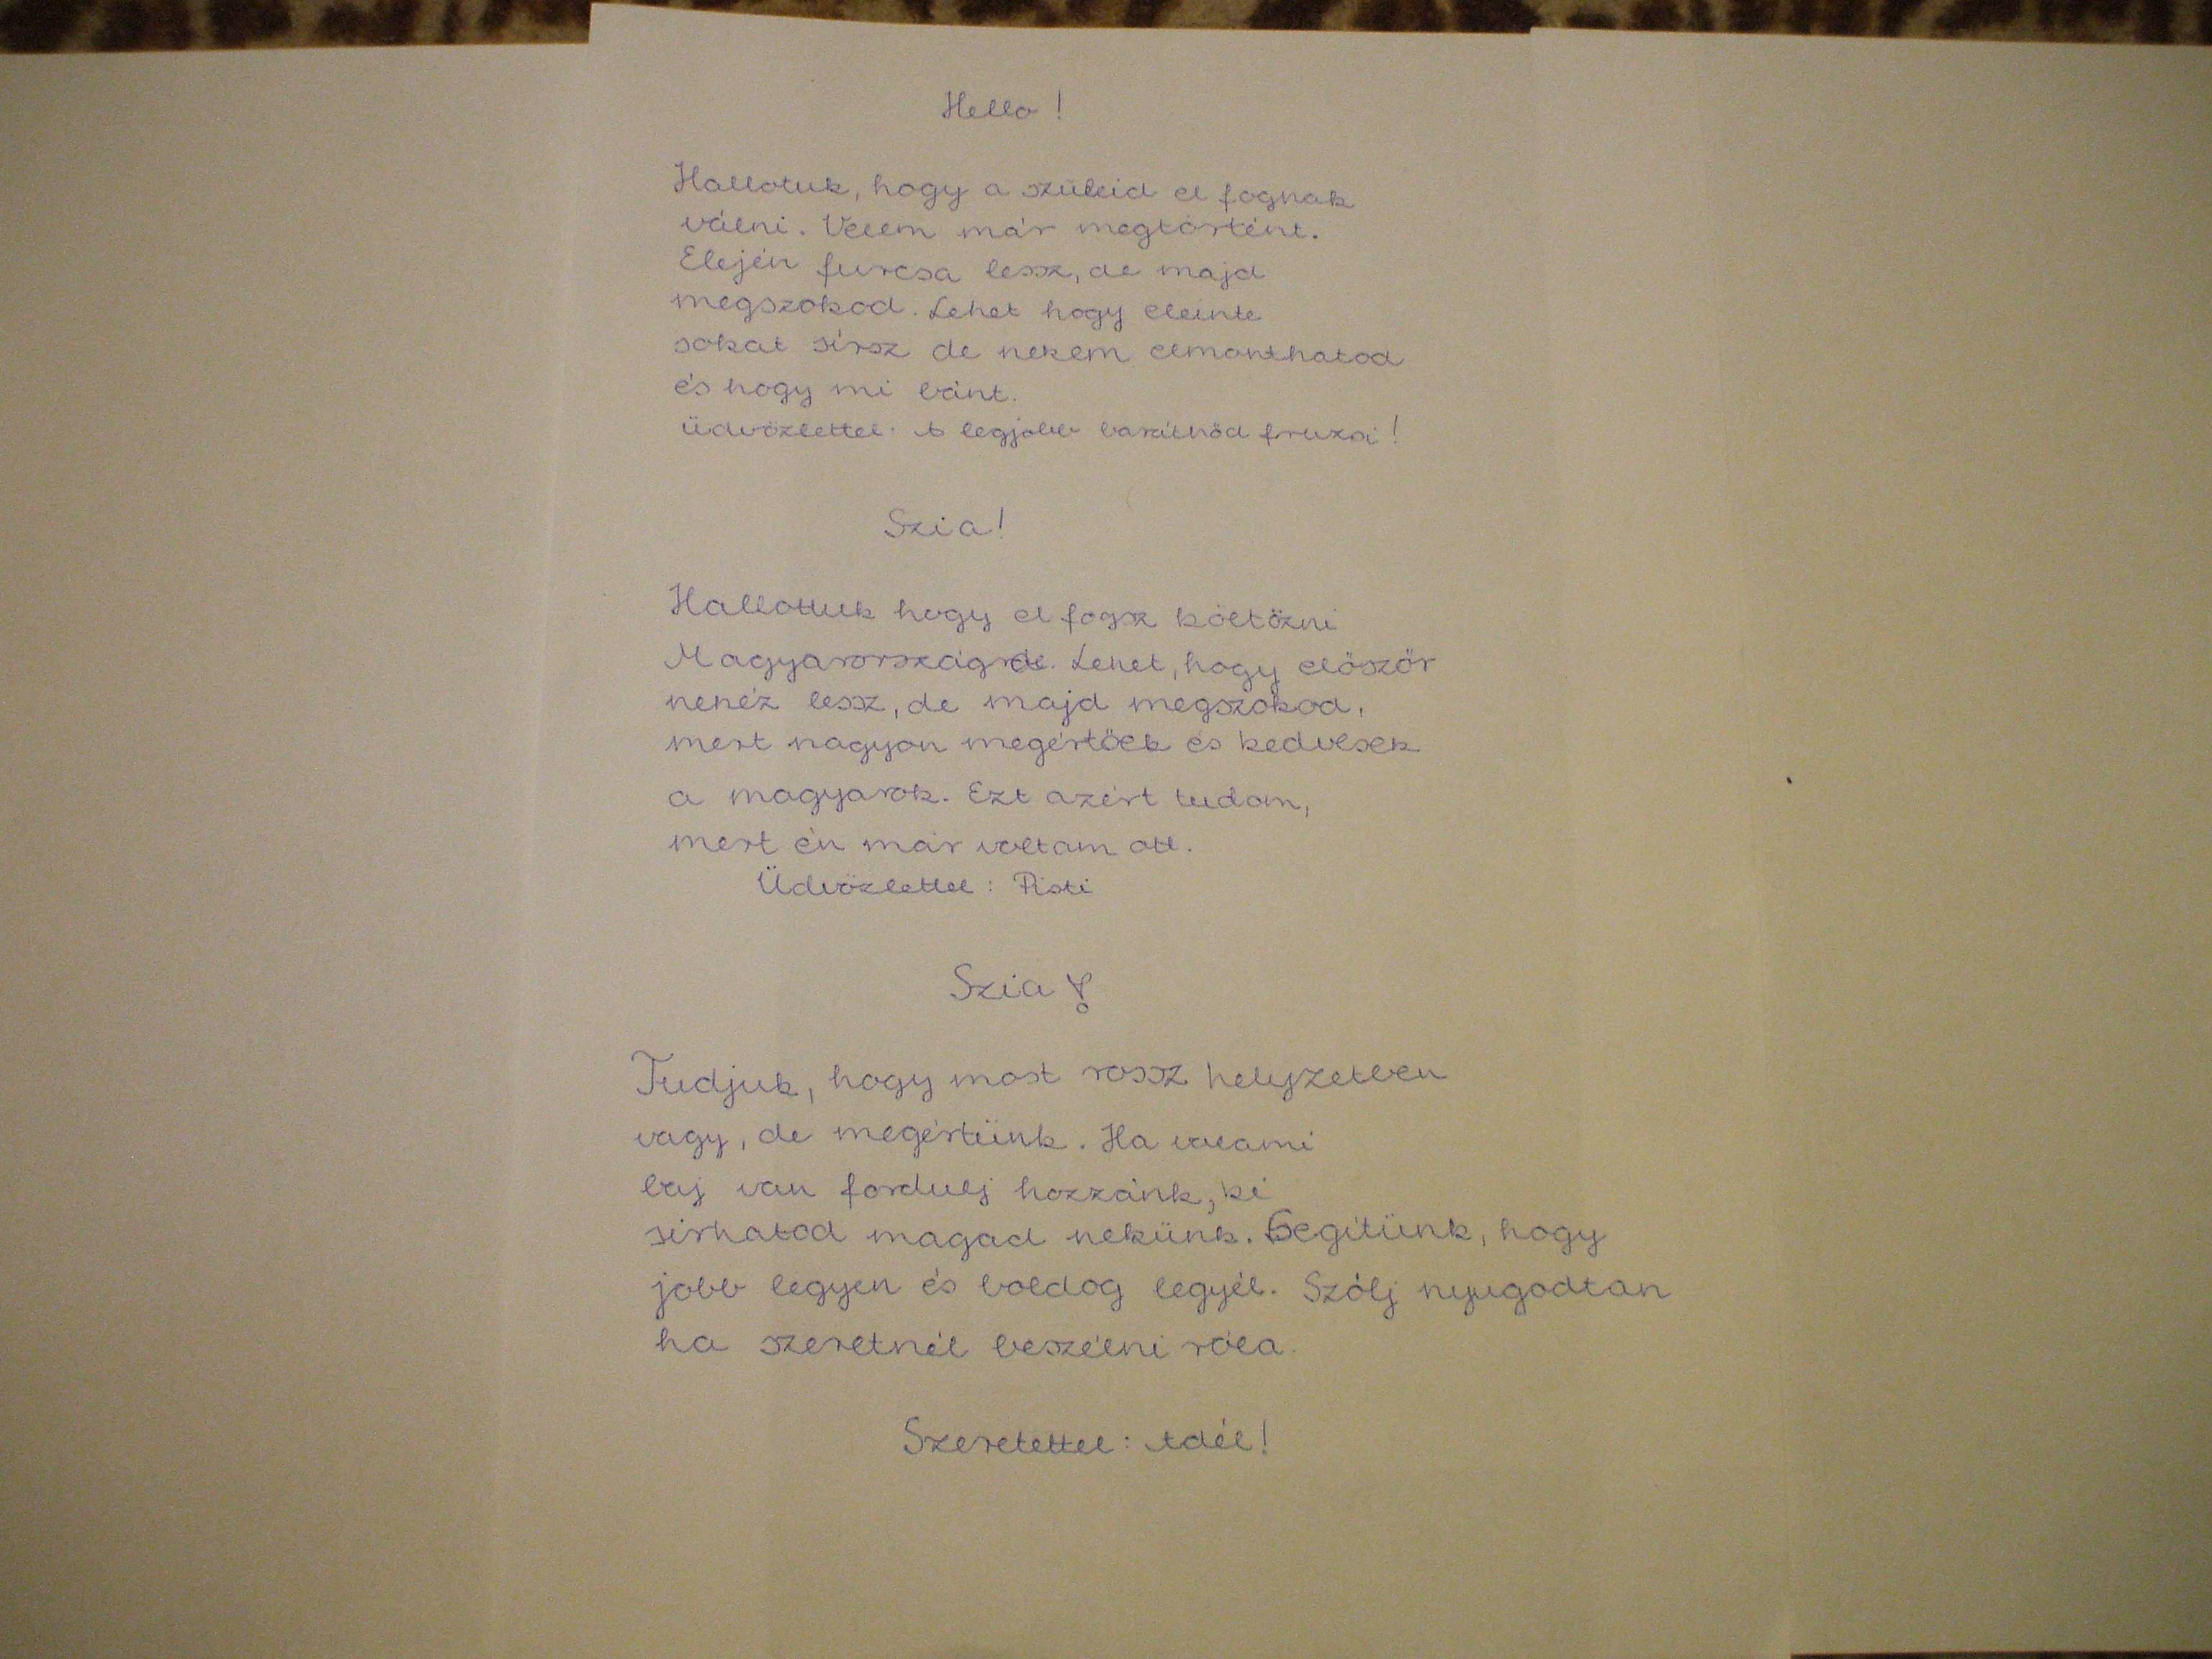 Hello!
Hallotuk, hogy a szüleid el fognak
válni. Velem már megtörtént.
Elején furcsa lessz, de majd
megszokod. Lehet hogy eleinte
sokat sírsz de nekem elmonthatod
és hogy mi bánt.
üdvözlettel: A legjobb barátnőd fruzsi!
Szia!
Hallottuk hogy el fogsz költözni
Magyarországra. Lehet, hogy először
nehéz lessz, de majd megszokod,
mert nagyon megértőek és kedvesek
a magyarok. Ezt azért tudom,
mert én már voltam ott.
Üdvözlettel: Pisti
Szia!
Tudjuk, hogy most rossz helyzetben
vagy, de megértünk. Ha valami
baj van fordulj hozzánk, ki
sírhatod magad nekünk. Segítünk, hogy
jobb legyen és boldog legyél. Szólj nyugodtan
ha szeretnél beszélni róla.
Szeretettel: Adél!